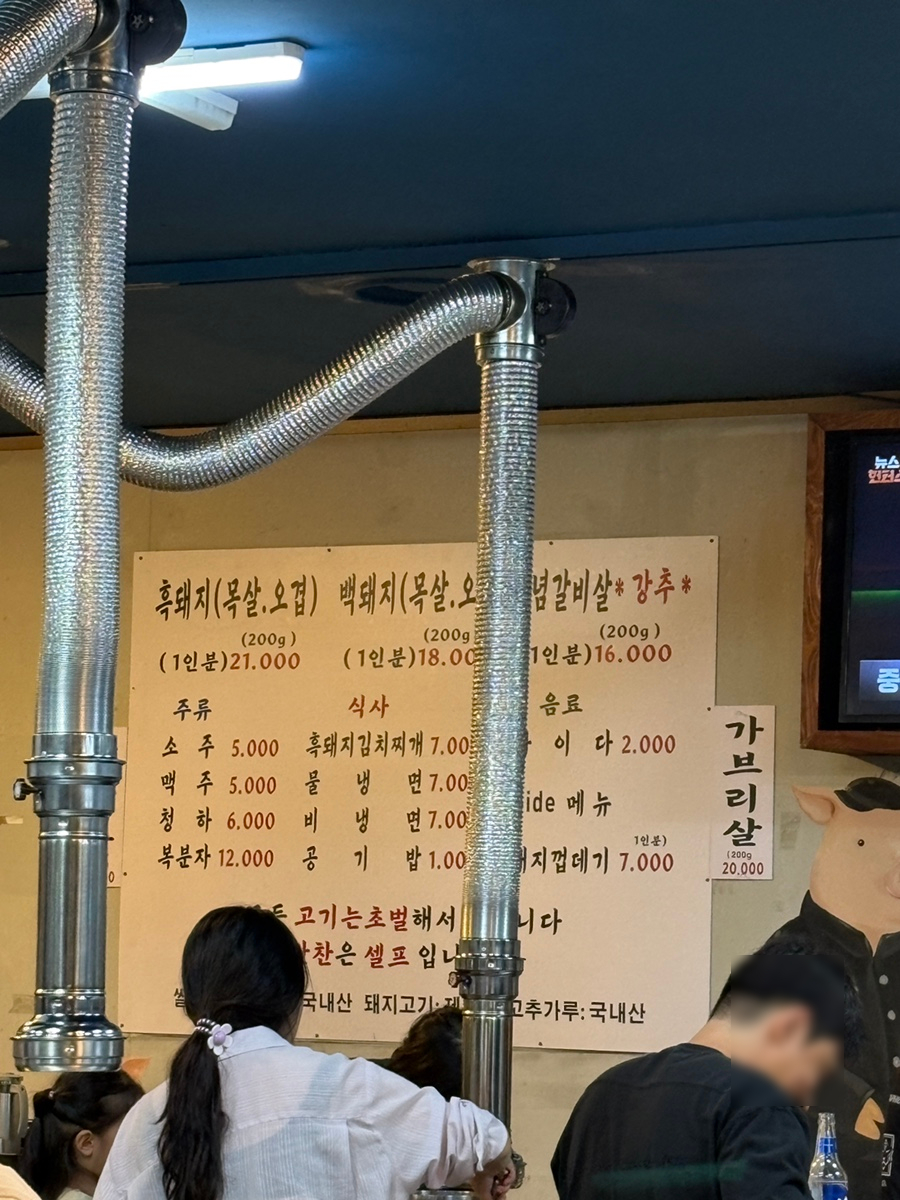 흑돼지(목살.오겹) 백돼지(목살.오 념갈비살*강추*
(200g) (200g (200g)
(1인분)21.000 (1인분)18.00 1인분)16.000
주류 식사 음료
소 주 5.000 흑돼지김치찌개 7.00 이 다 2.000
맥 주 5.000 물 냉 면 7.00
청 하 6.000 비 냉 면 7.00 ide 메뉴
복분자 12.000 공 기 밥 1.00 돼지껍데기 7.000
1인분)
고기는초벌해서 니다
찬은 셀프 입니
쌀 국내산 돼지고기: 고추가루:국내산
가브리살
(200g
20,000
뉴스
중